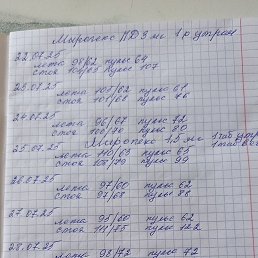 Мирапекс ПД 3 мг 1 р утром
22.07.25
лежа 98/62 пульс 64
стоя 104/65 пульс 107
23.07.25
лежа 105/62 пульс 61
стоя 101/68 пульс 76
24.07.25
лежа 96/67 пульс 72
стоя 106/70 пульс 80
Мирапекс 1,5 мг 1 таб утр
25.07.25 1 таб веч
лежа 110/65 пульс 65
стоя 108/79 пульс 99
26.07.25
лежа 97/60 пульс 62
стоя 97/68 пульс 88
27.07.25
лежа 95/60 пульс 62
стоя 111/75 пульс 122
28.07.25
лежа 93/72 пульс 72